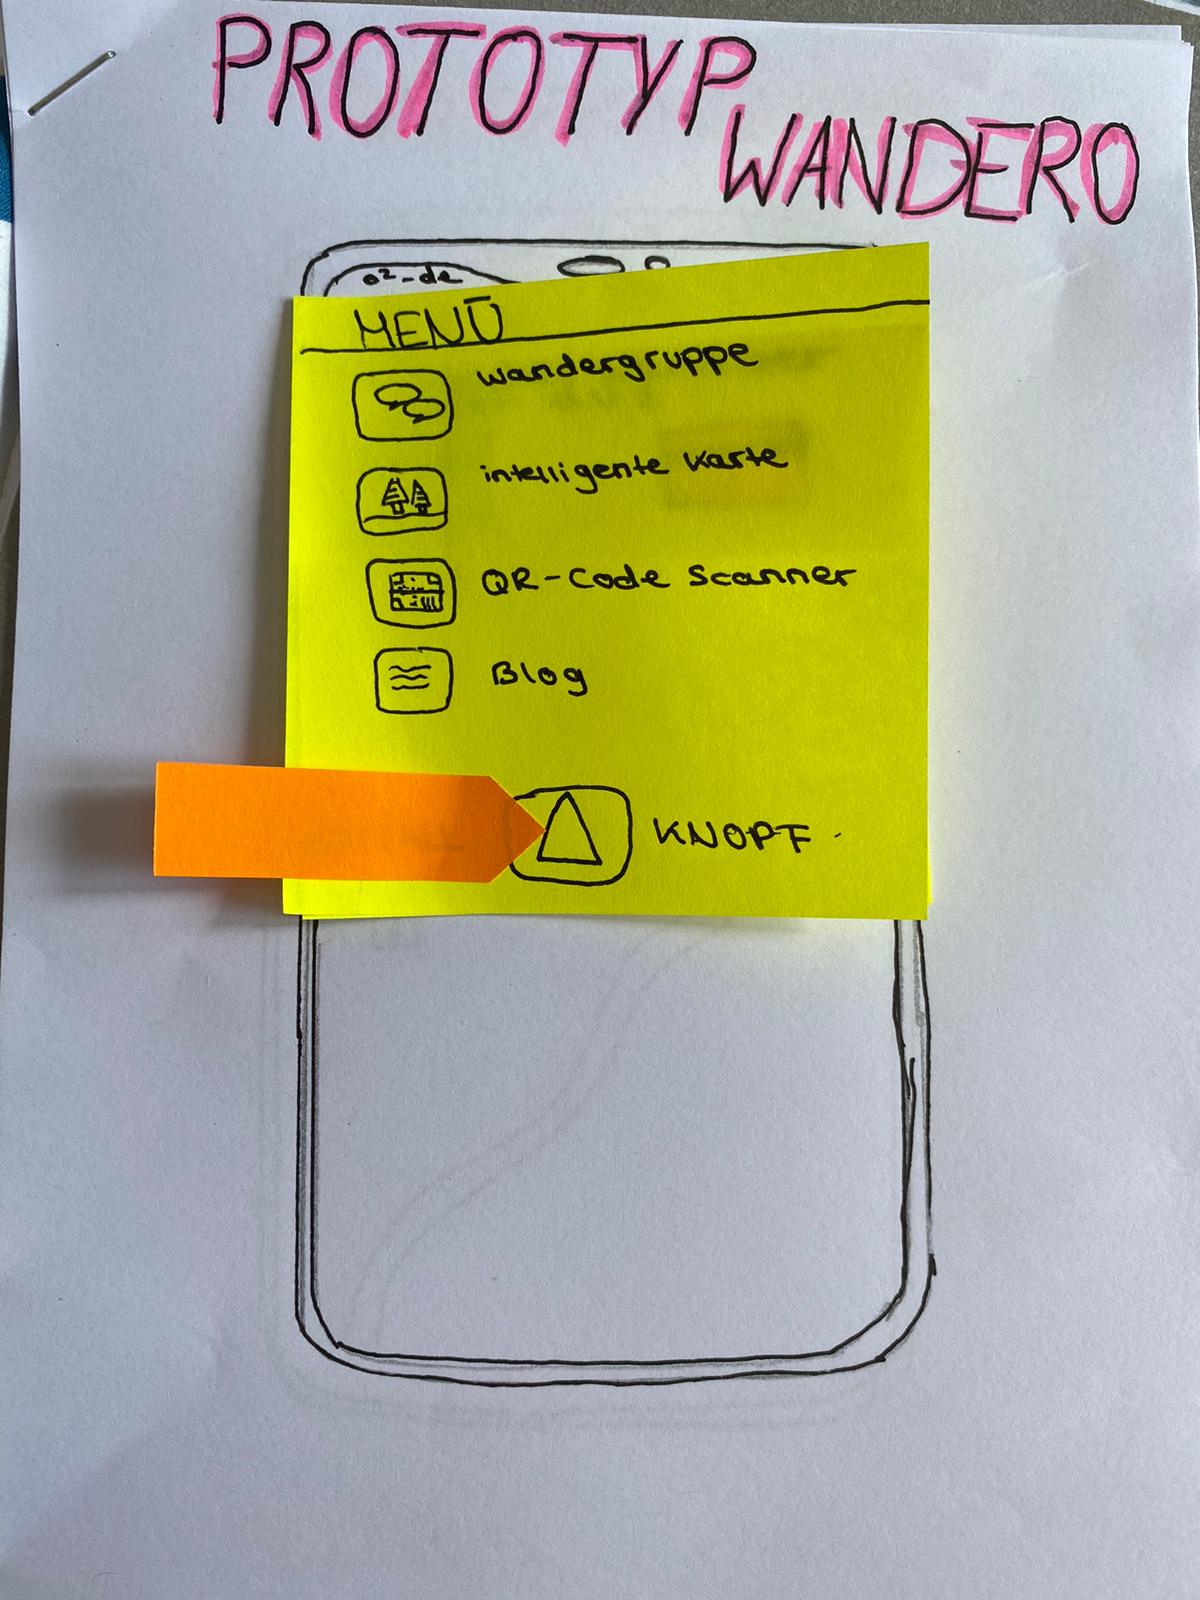 PROTOTYP
WANDERO
o²-de
MENÜ
wandergruppe
intelligente Karte
QR-Code Scanner
Blog
KNOPF